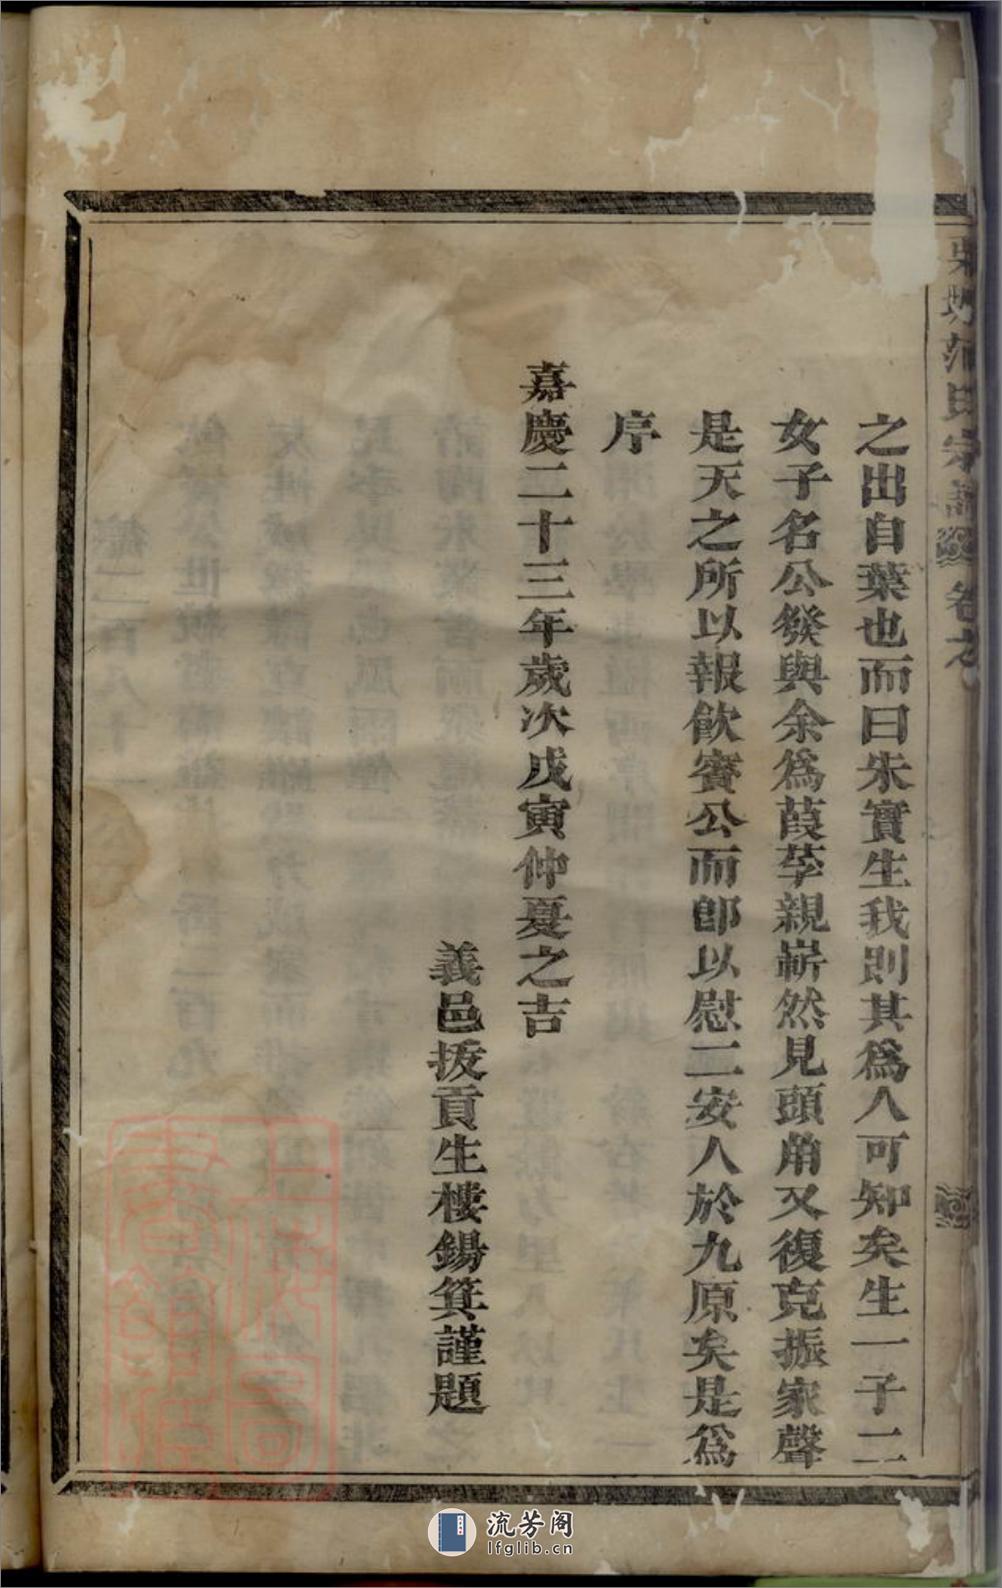 氏宗譜 卷之
之出自葉也而曰朱實生我則其爲人可知矣生一子二
女子名公發與余爲葭莩親嶄然見頭角又復克振家聲
是天之所以報飲賓公而卽以慰二安人於九原矣是爲
序
嘉慶二十三年歲次戊寅仲夏之吉
義邑拔貢生樓錫箕謹題
流芳阁
lfglib.cn